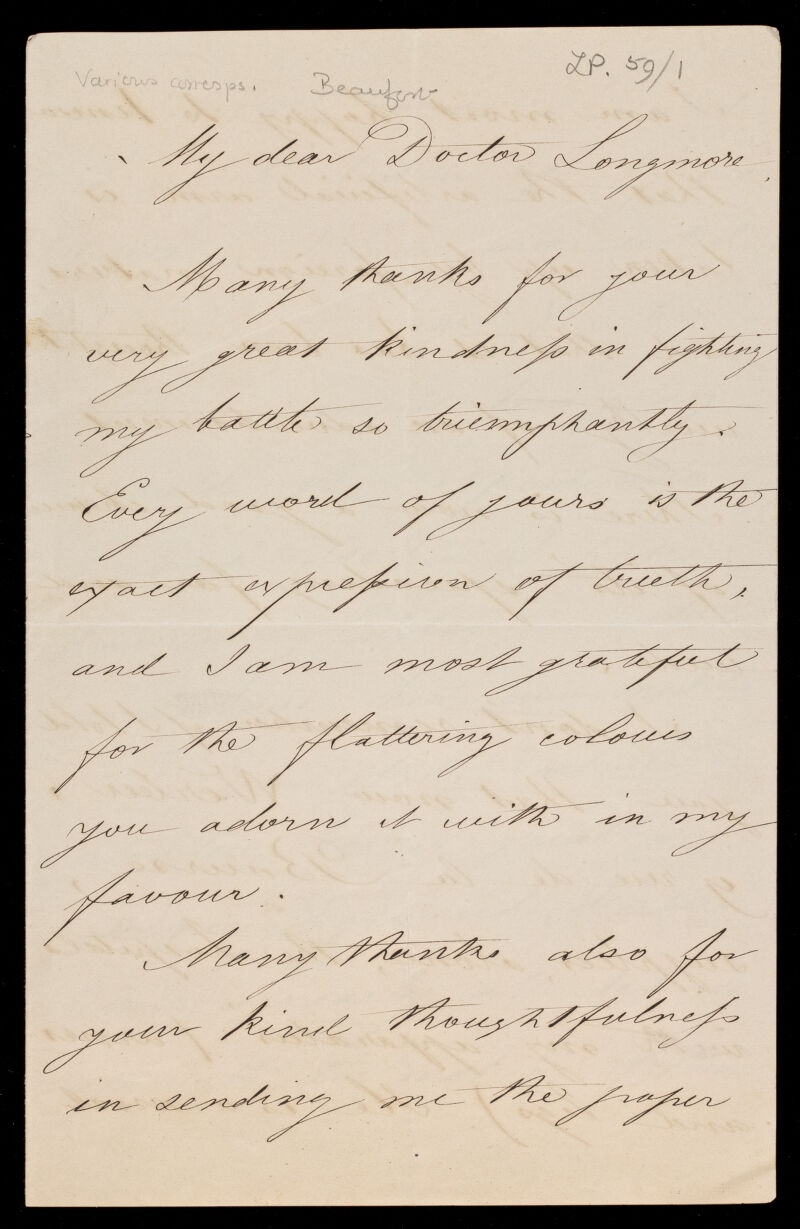 Various corresps. Beaufort LP. 59/1
My dear Doctor Longmore,
Many thanks for your
very great kindness in fighting
my battle so triumphantly.
Every word of yours is the
exact expression of truth,
and I am most grateful
for the flattering colours
you adorn it with in my
favour.
Many thanks also for
your kind thoughtfulness
in sending me the paper